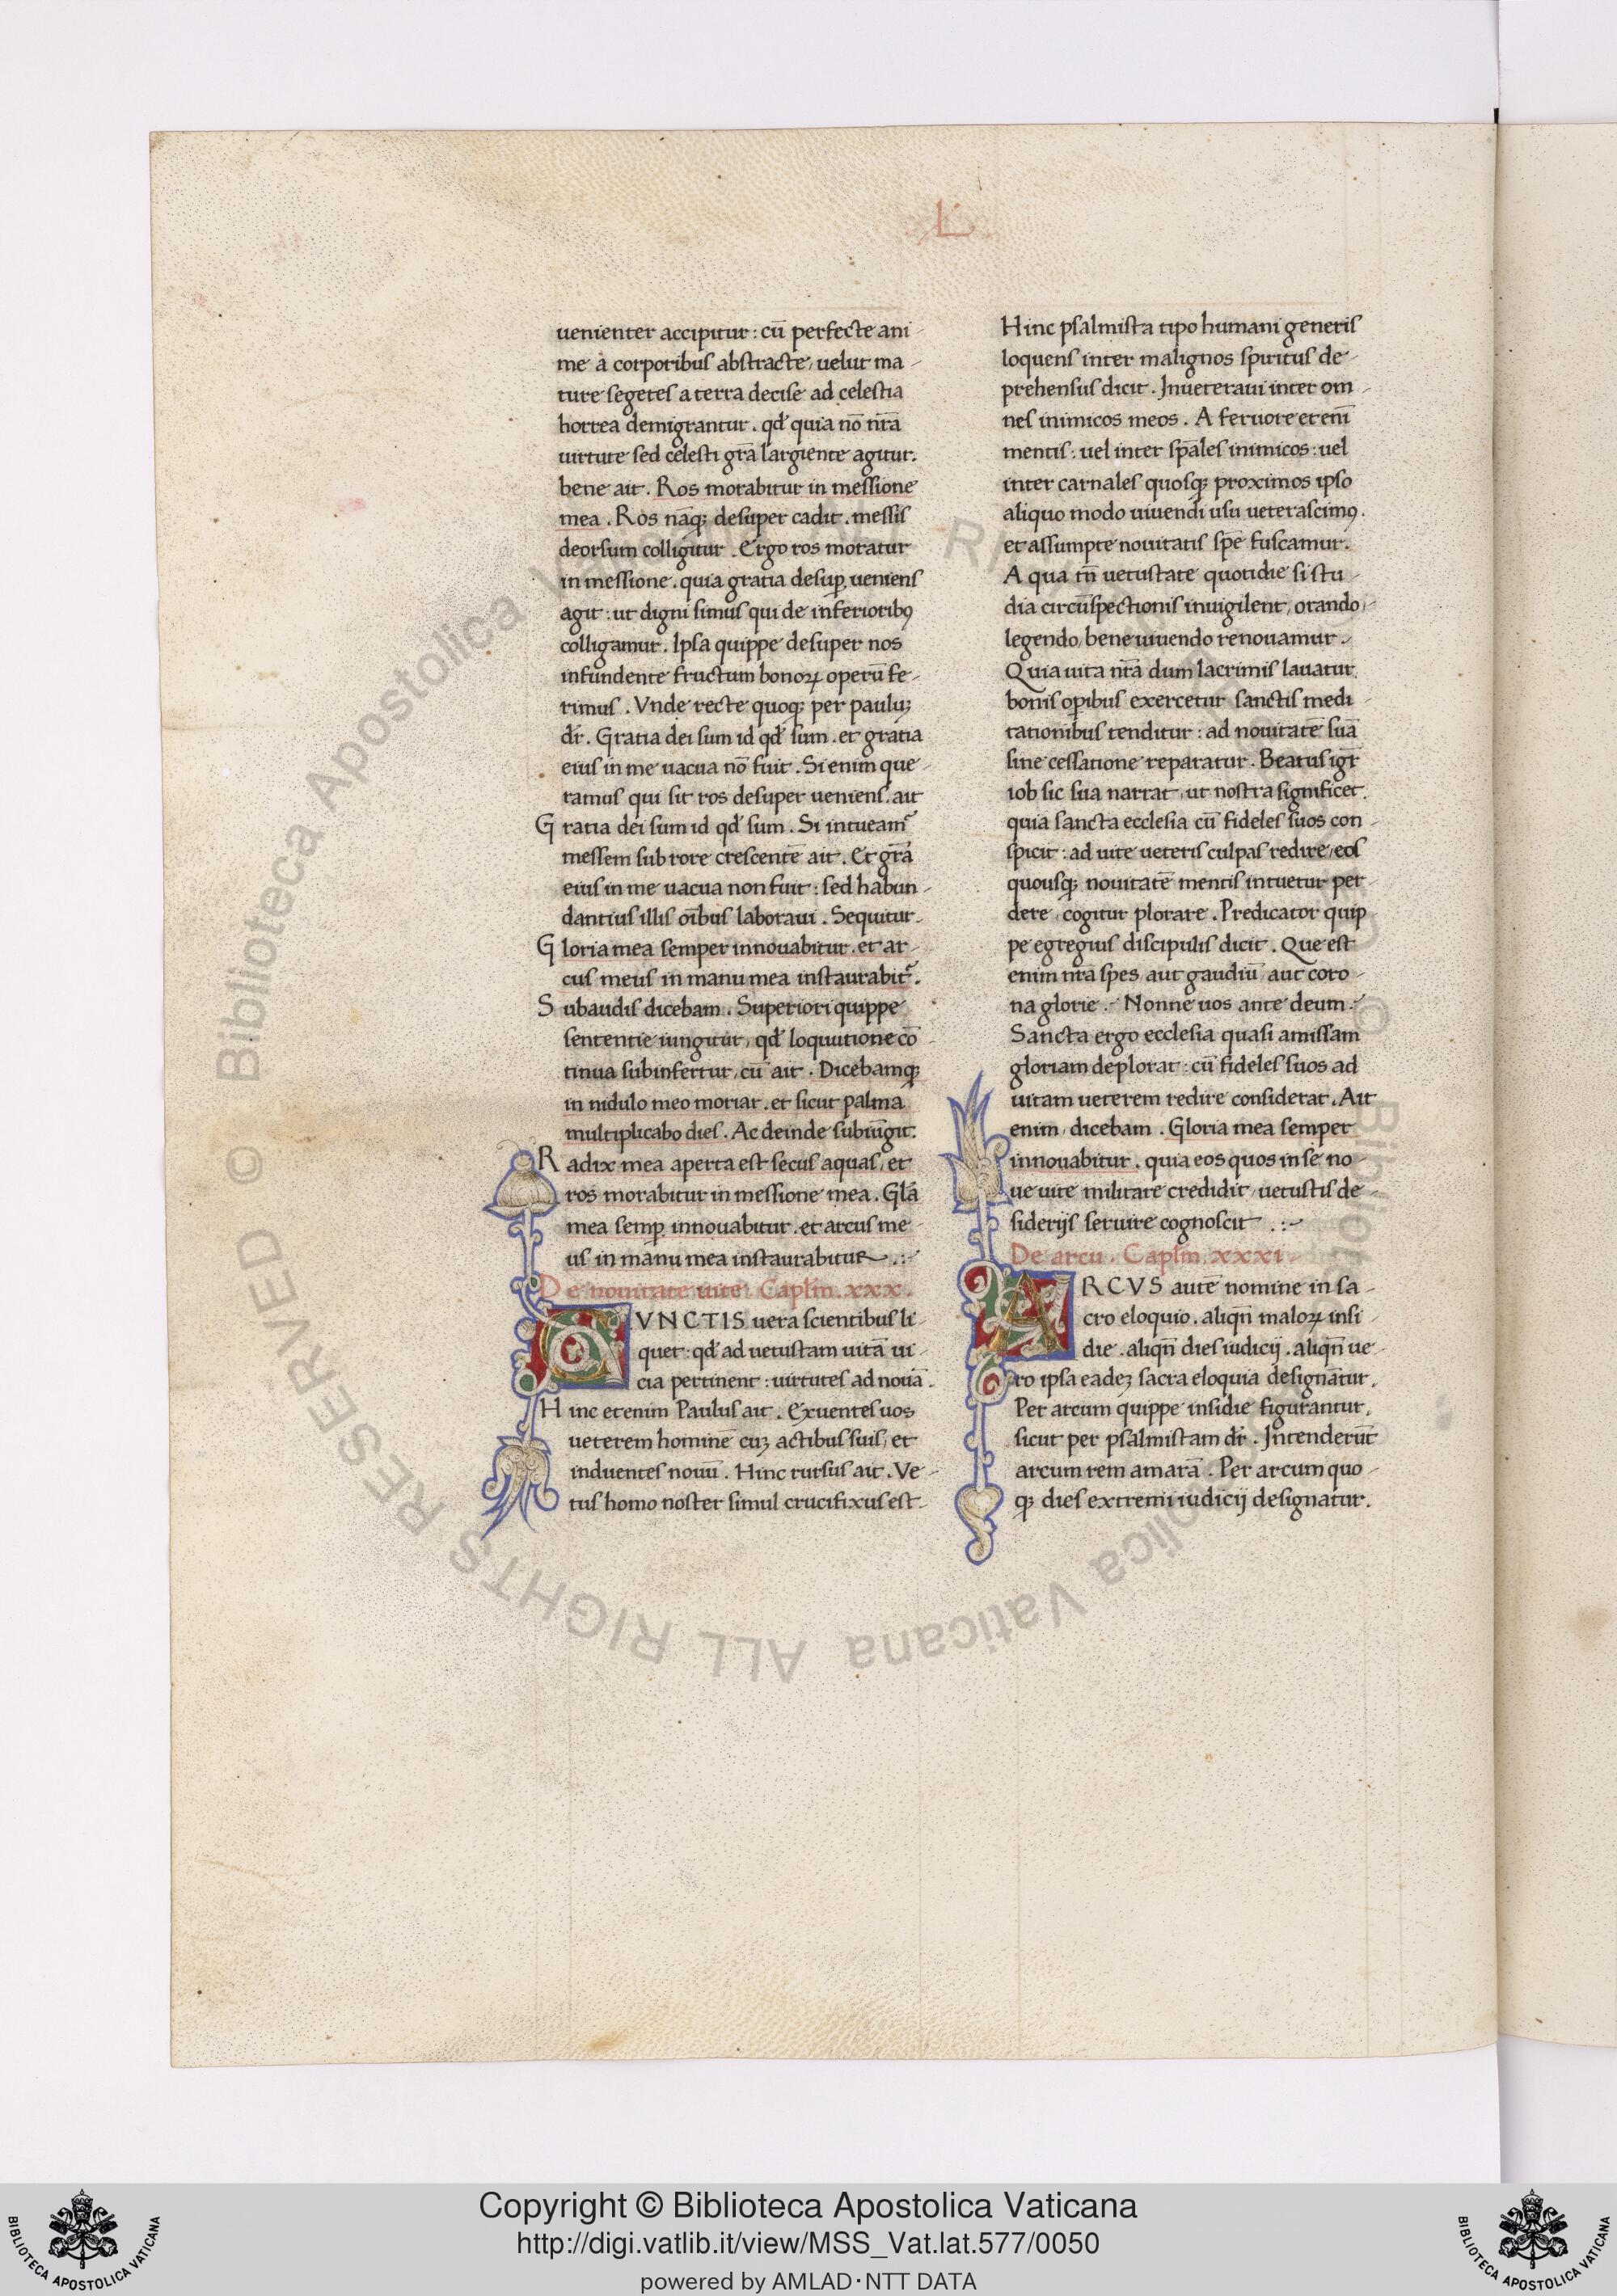 L
uenienter accipitur : cū perfecte ani-
me a corporibus abstracte, uelut ma-
ture segetes a terra decise ad celestia
horrea demigrantur . qđ quia nō nr̄a
uirtute sed celesti gr̄a largiente agitur.
bene ait . Ros morabitur in messione
mea . Ros nāq; desuper cadit . messis
deorsum colligitur . Ergo ros moratur
in messione . quia gratia desuꝑ ueniens
agit : ut digni simus qui de inferioribꝰ
colligamur . Ipsa quippe desuper nos
infundente fructum bonoꝝ operū fe-
rimus . Vnde recte quoq; per pauluꝫ
dr̄ . Gratia dei sum id qđ sum . et gratia
eius in me uacua nō fuit . Si enim que-
ramus qui sit ros desuper ueniens . ait
Gratia dei sum id qđ sum . Si intueam᷑
messem sub rore crescentē ait . Et gr̄a
eius in me uacua non fuit : sed habun-
dantius illis oībus laboraui . Sequitur .
Gloria mea semper innouabitur . et ar-
cus meus in manu mea instaurabit᷑ .
Subaudis dicebam . Superiori quippe
sententie iungitur, qđ loquutione cō-
tinua subinfertur, cū ait . Dicebamq;
in nidulo meo moriar . et sicut palma
multiplicabo dies . Ac deinde subiūgit.
Radix mea aperta est secus aquas, et
ros morabitur in messione mea . Glā
mea semꝑ innouabitur . et arcus me-
us in manu mea instaurabitur .:-
De nouitate uite . Caplm̄ . xxx .
CVNCTIS uera scientibus li-
quet : qđ ad uetustam uitā ui-
cia pertinent : uirtutes ad nouā .
Hinc etenim Paulus ait . Exuentes uos
ueterem hominē cuꝫ actibus suis, et
induentes nouū . Hinc rursus ait . Ve-
tus homo noster simul crucifixus est .
Hinc psalmista tipo humani generis
loquens inter malignos spiritus de-
prehensus dicit . Inueteraui inter om-
nes inimicos meos . A feruore etenī
mentis : uel inter sp̄ales inimicos : uel
inter carnales quosq; proximos ipso
aliquo modo uiuendi usu ueterascimꝰ .
et assumpte nouitatis spē fuscamur .
A qua tn̄ uetustate quotidie si stu-
dia circūspectionis inuigilent, orando,
legendo, bene uiuendo renouamur .
Quia uita nr̄a dum lacrimis lauatur,
bonis oꝑibus exercetur sanctis medi-
tationibus tenditur : ad nouitatē suā
sine cessatione reparatur . Beatus igr̄
iob sic sua narrat, ut nostra significet .
quia sancta ecclesia cū fideles suos con-
spicit : ad uite ueteris culpas redire, eos
quousq; nouitatē mentis intuetur per-
dere, cogitur plorare . Predicator quip-
pe egregius discipulis dicit . Que est
enim nr̄a spes, aut gaudiū, aut coro-
na glorie . Nonne uos ante deum .
Sancta ergo ecclesia quasi amissam
gloriam deplorat : cū fideles suos ad
uitam ueterem redire considerat . Ait
enim, dicebam . Gloria mea semper
innouabitur . quia eos quos in se no-
ue uite militare credidit, uetustis de-
siderijs seruire cognoscit .:-
De arcu . Caplm̄ . xxxi
ARCVS autē nomine in sa-
cro eloquio . aliqn̄ maloꝝ insi-
die . aliqn̄ dies iudicij . aliqn̄ ue-
ro ipsa eadeꝫ sacra eloquia designātur .
Per arcum quippe insidie figurantur,
sicut per psalmistam dr̄ . Intenderūt
arcum rem amarā . Per arcum quo-
q; dies extremi iudicij designatur .
© Biblioteca Apostolica Vaticana ALL RIGHTS RESERVED
Copyright © Biblioteca Apostolica Vaticana
http://digi.vatlib.it/view/MSS_Vat.lat.577/0050
powered by AMLAD·NTT DATA
BIBLIOTECA APOSTOLICA VATICANA
BIBLIOTECA APOSTOLICA VATICANA